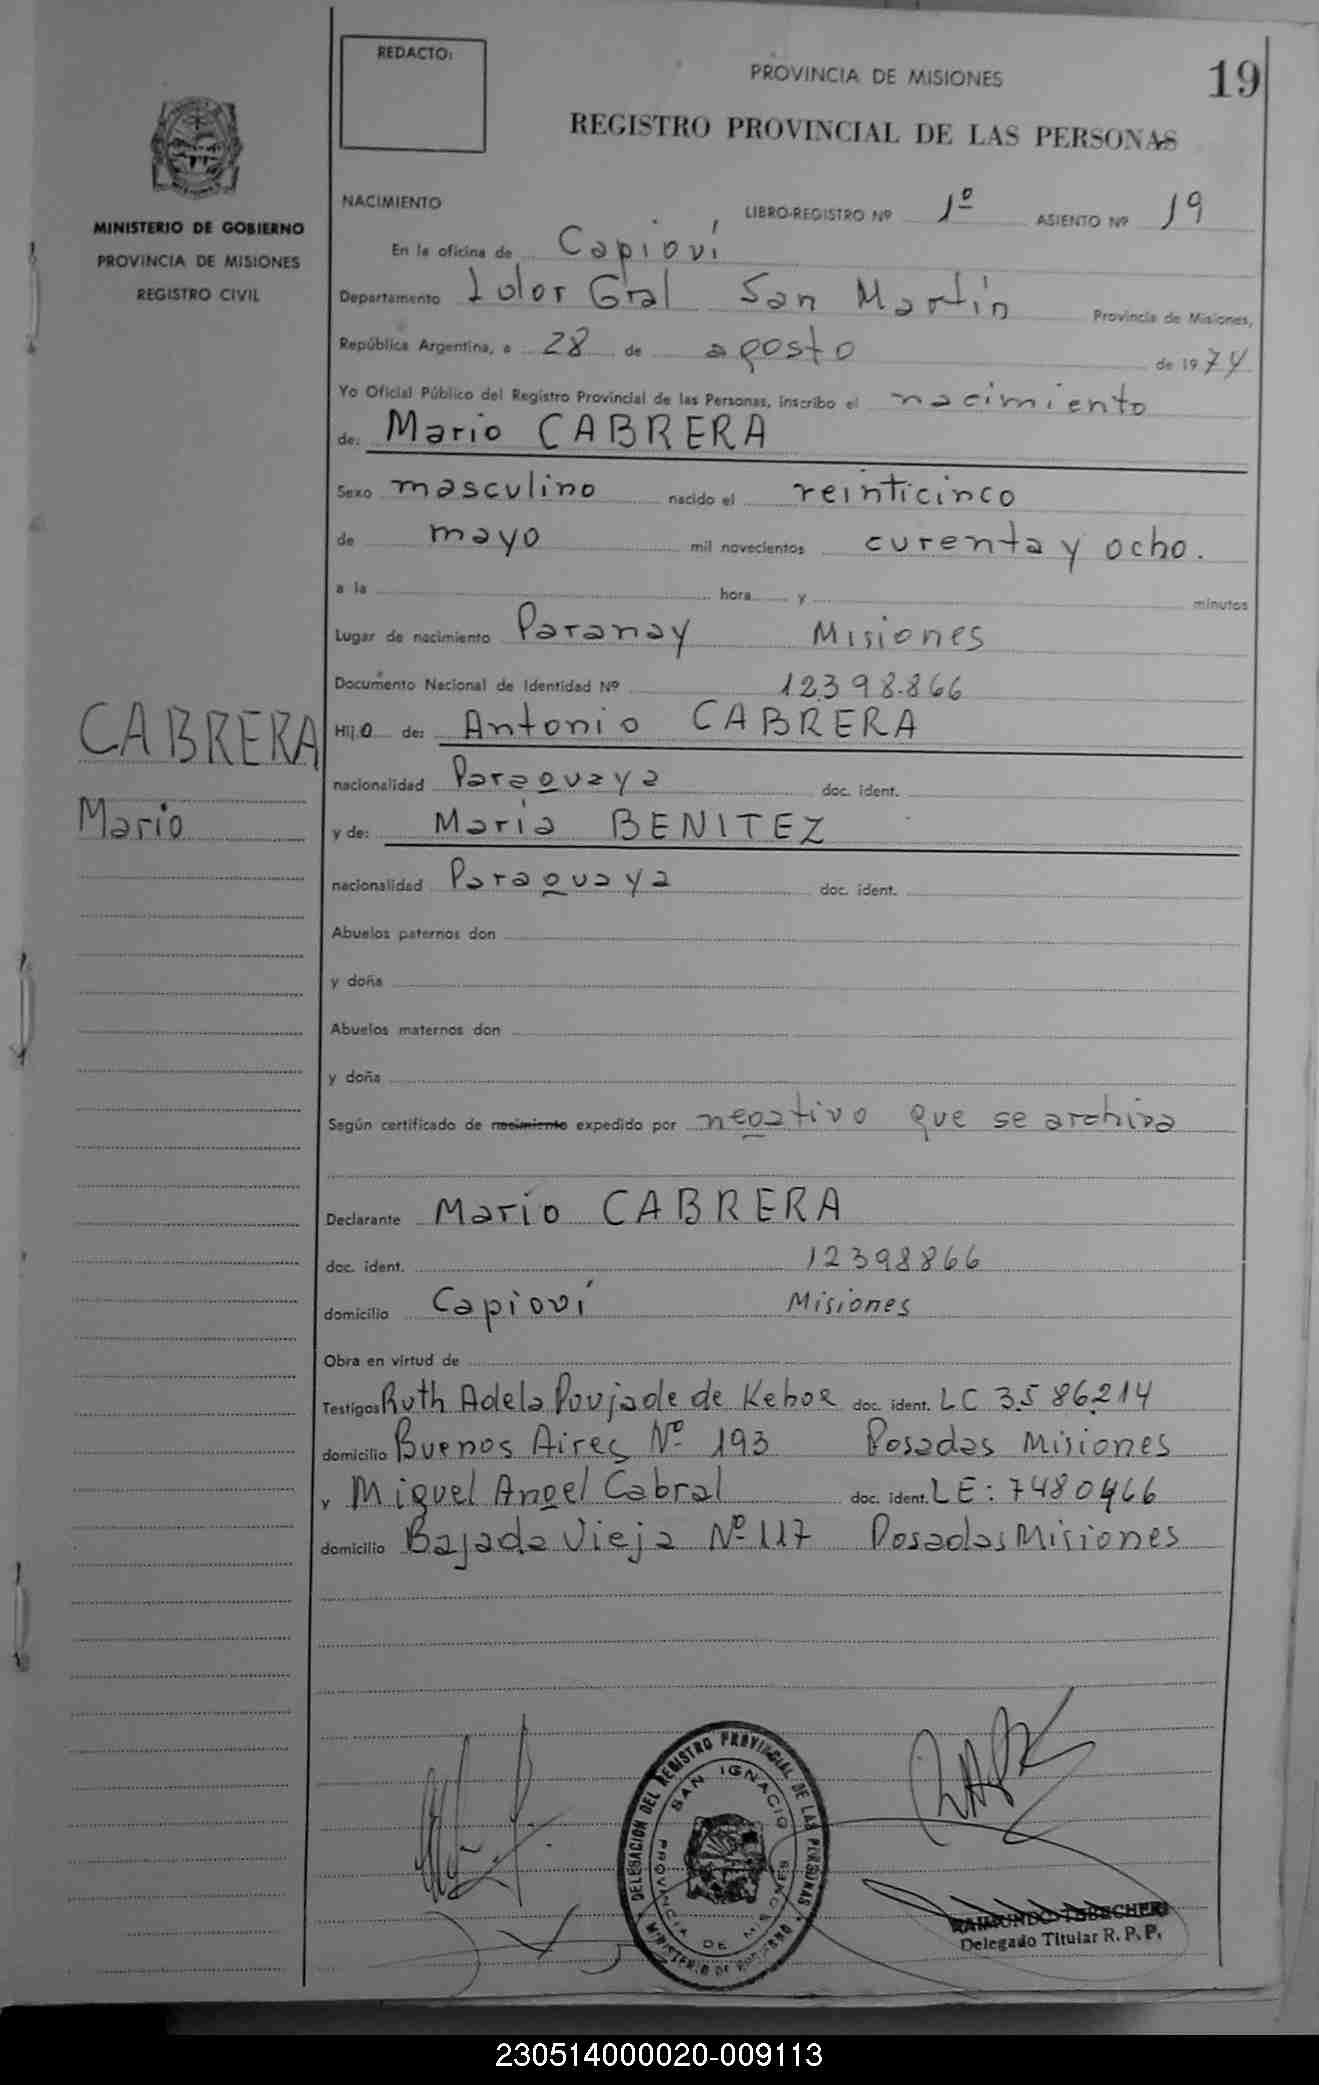 REDACTO:
PROVINCIA DE MISIONES
19
REGISTRO PROVINCIAL DE LAS PERSONAS
MINISTERIO DE GOBIERNO
PROVINCIA DE MISIONES
REGISTRO CIVIL
NACIMIENTO
LIBRO-REGISTRO Nº 1º ASIENTO Nº 19
En la oficina de Capioví
Departamento Ldor Gral San Martín Provincia de Misiones,
República Argentina, a 28 de agosto de 1974
Yo Oficial Público del Registro Provincial de las Personas, inscribo el nacimiento
de: Mario CABRERA
Sexo masculino nacido el veinticinco
de mayo mil novecientos curenta y ocho.
a la hora y minutos
Lugar de nacimiento Paranay Misiones
Documento Nacional de Identidad Nº 12.398.866
CABRERA
Mario
Hijo de: Antonio CABRERA
nacionalidad Paraguaya doc. ident.
y de: María BENITEZ
nacionalidad Paraguaya doc. ident.
Abuelos paternos don
y doña
Abuelos maternos don
y doña
Según certificado de nacimiento expedido por negativo que se archiva
Declarante Mario CABRERA
doc. ident. 12398866
domicilio Capioví Misiones
Obra en virtud de
Testigos Ruth Adela Poujade de Keboe doc. ident. LC 3.586.214
domicilio Buenos Aires Nº 193 Posadas Misiones
y Miguel Angel Cabral doc. ident. LE: 7480466
domicilio Bajada Vieja Nº 117 Posadas Misiones
DELEGACION DEL REGISTRO PROVINCIAL DE LAS PERSONAS
SAN IGNACIO
PROVINCIA DE MISIONES
MINISTERIO DE GOBIERNO
RAIMUNDO
Delegado Titular R. P. P.
230514000020-009113